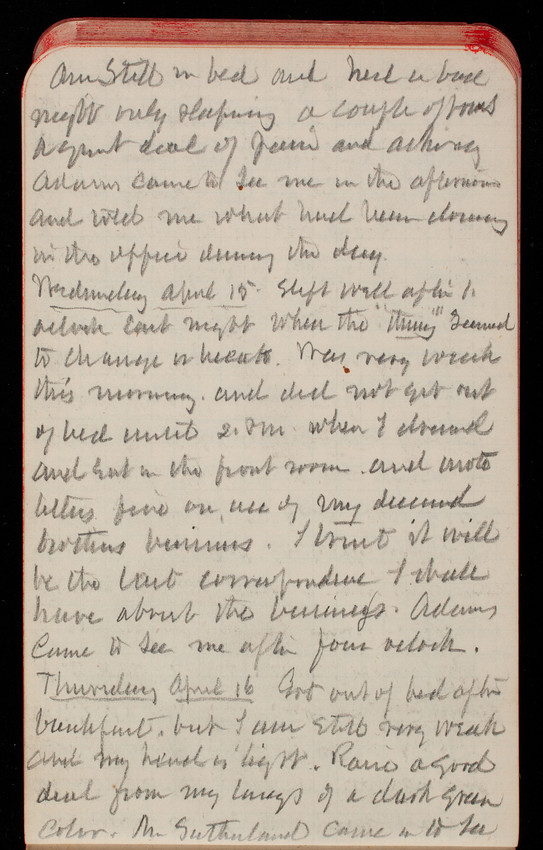 Am still in bed and had a bad
night only sleeping a couple of hours
A great deal of pain and aching
Adams came to see me in the afternoon
and told me what had been doing
in the office during the day.
Wednesday April 15. Slept well after 1.
oclock last night when the "thing" seemed
to change or break. Was very weak
this morning. and did not get out
of bed until 2. P.M. when I dressed
and sat in the front room. and wrote
letters five on, use of my deceased
brothers business. I trust it will
be the last correspondence I shall
have about the business. Adams
Came to see me after four oclock.
Thursday April 16 Got out of bed after
breakfast. but I am still very weak
and my head is light. Raise a good
deal from my lungs of a dark green
color. Mr Sutherland came in to see